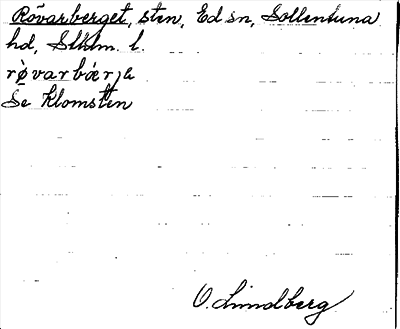 Rövarberget, sten, Ed sn, Sollentuna
hd, Sthlm. l.
Se Klomsten
O. Lundberg